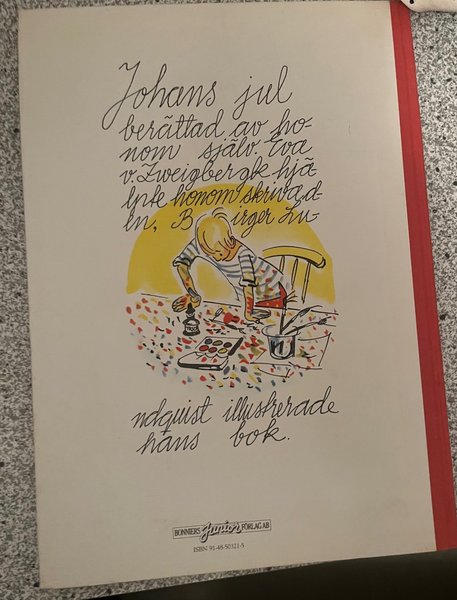 Johans jul
berättad av ho-
nom själv. Eva
v. Zweigbergk hjä-
lpte honom skriva d-
en, Birger Lu-
ndquist illustrerade
hans bok.
BONNIERS Junior FÖRLAG AB
ISBN 91-48-50321-5